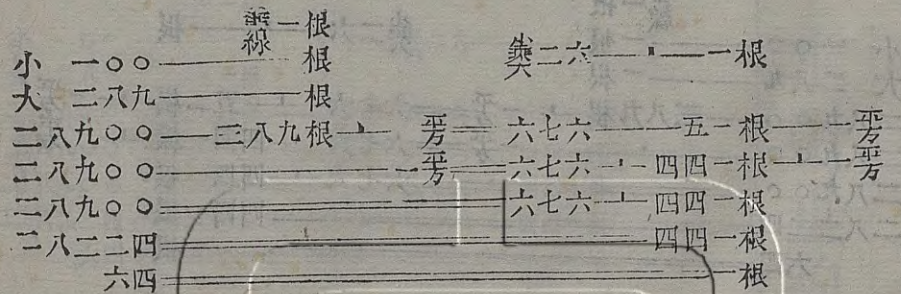 線一根
小一〇〇——根 二六—⊥—一根
大二八九——根
二八九〇〇——三八九根⊥平方══六七六——五一根——平方
二八九〇〇══平方══六七六⊥四四一根⊥平方
二八九〇〇══六七六⊥四四一根
二八二二四══四四一根
六四══一根